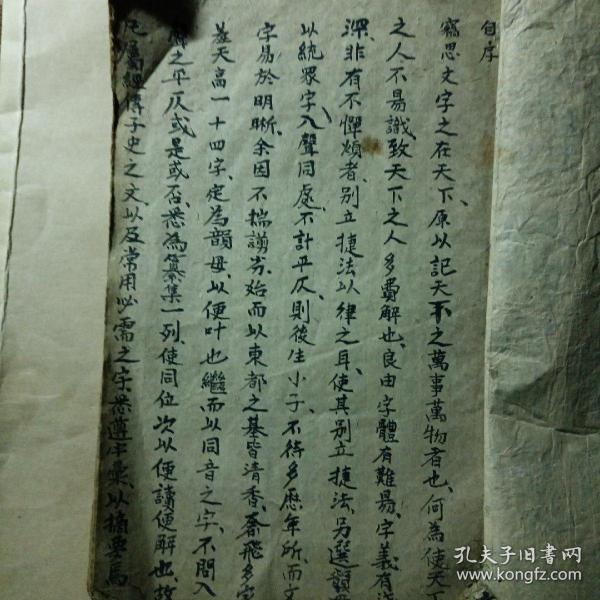 自序
窩思文字之在天下、原以記天下之萬事萬物者也、何為使天下
之人不易識、致天下之人多費解也、良由字體有難易、字義有淺
深、非有不憚煩者、別立捷法以律之耳、使其別立捷法、另選韻母
以統眾字、入聲同處、不計平仄、則後生小子、不待多歷年所、而文
字易於明晰、余因不揣謭劣、始而以東都之基皆清香、飛多家
蓋天高一十四字、定為韻母、以便叶也、繼而以同音之字、不問入
聲之平仄、或是或否、悉為纂集一列、使同位次、以便讀便解也、故
凡屬經傳子史之文、以及常用必需之字、悉遵字彙、以摘要焉
孔夫子旧书网
www.kongfz.com